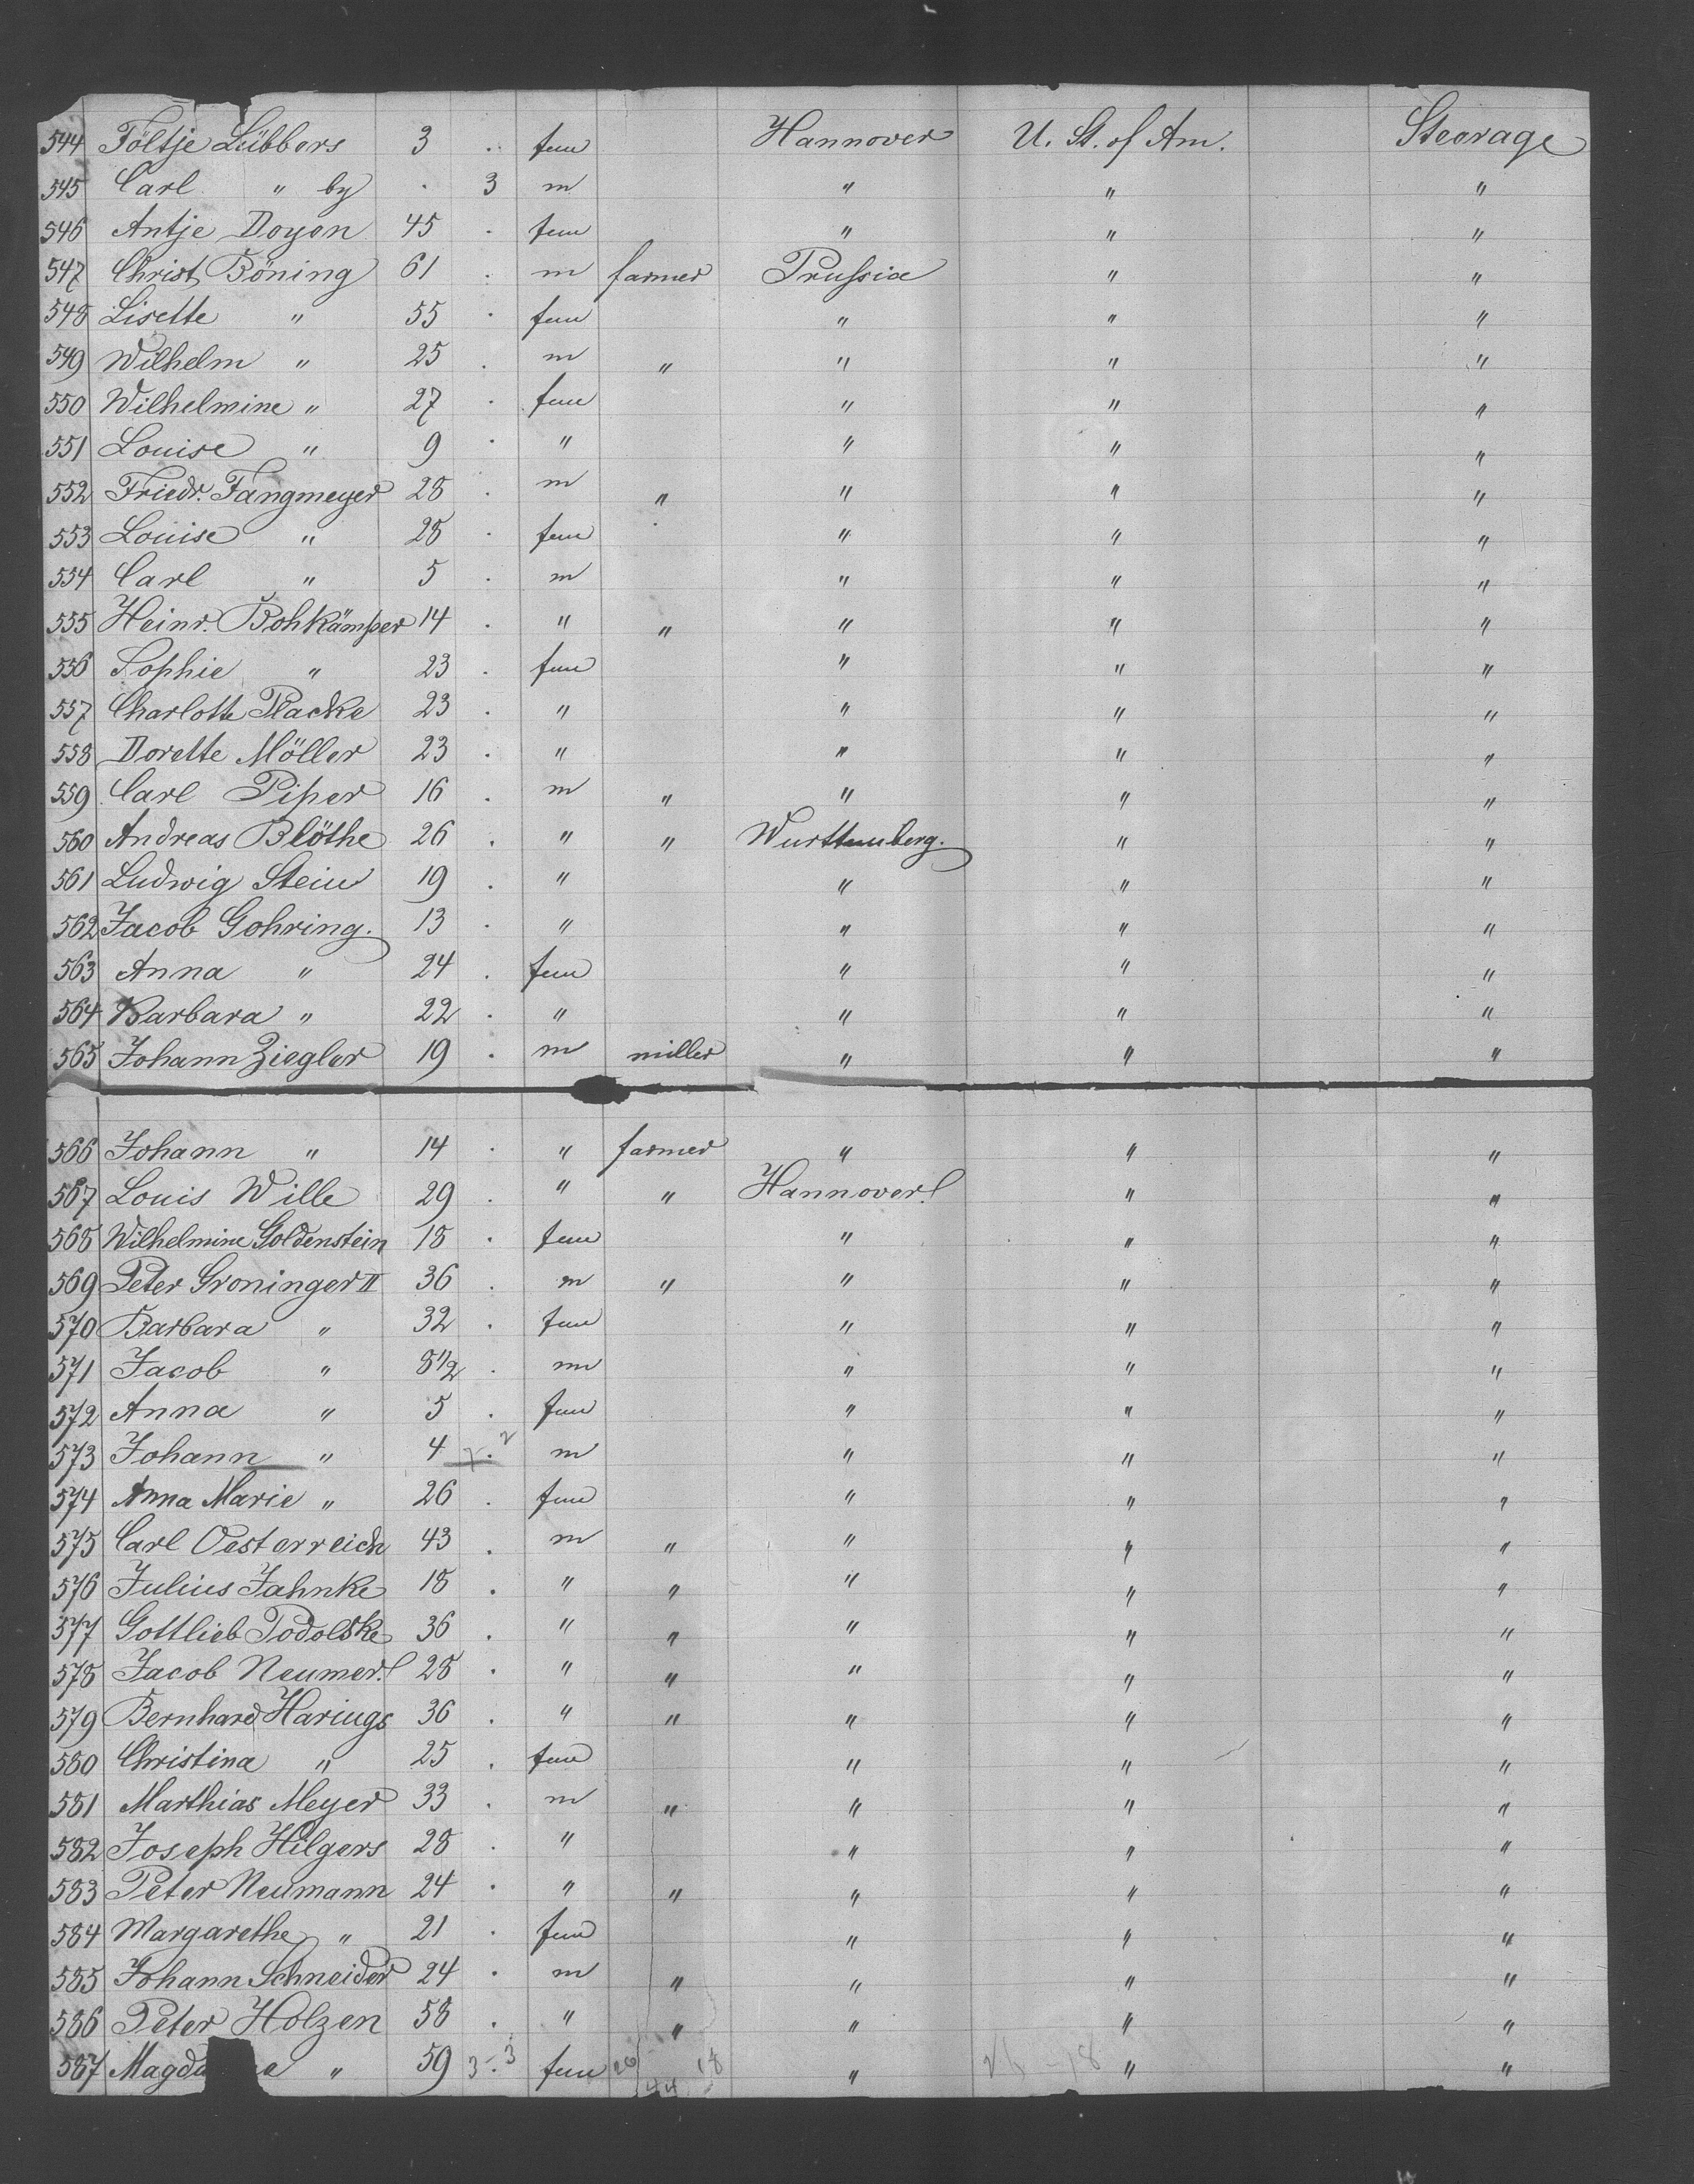 544 Töltje Lübbers 3 . fem Hannover U. St. of Am. Steerage
545 Carl " by . 3 m " " "
546 Antje Doyen 45 . fem " " "
547 Christ. Böning 61 . m farmer Prussia " "
548 Lisette " 55 . fem " " "
549 Wilhelm " 25 . m " " " "
550 Wilhelmine " 27 . fem " " "
551 Louise " 9 . " " " "
552 Friedr. Fangmeyer 28 . m " " " "
553 Louise " 28 . fem " " "
554 Carl " 5 . m " " "
555 Heinr. Bohkämper 14 . " " " " "
556 Sophie " 23 . fem " " "
557 Charlotte Placke 23 . " " " "
558 Dorette Möller 23 . " " " "
559 Carl Piper 16 . m " " " "
560 Andreas Blöthe 26 . " " Wurttemberg. " "
561 Ludwig Stein 19 . " " " "
562 Jacob Gohring. 13 . " " " "
563 Anna " 24 . fem " " "
564 Barbara " 22 . " " " "
565 Johann Ziegler 19 . m miller " " "
566 Johann " 14 . " farmer " " "
567 Louis Wille 29 . " " Hannover " "
568 Wilhelmine Goldenstein 18 . fem " " "
569 Peter Groninger II 36 . m " " " "
570 Barbara " 32 . fem " " "
571 Jacob " 8 1/2 . m " " "
572 Anna " 5 . fem " " "
573 Johann " 4 . 2 m " " "
574 Anna Marie " 26 . fem " " "
575 Carl Oesterreich 43 . m " " " "
576 Julius Jahnke 18 . " " " " "
577 Gottlieb Podolske 36 . " " " " "
578 Jacob Neumerl 28 . " " " " "
579 Bernhard Harings 36 . " " " " "
580 Christina " 25 . fem " " "
581 Marthias Meyer 33 . m " " " "
582 Joseph Hilgers 28 . " " " "
583 Peter Neumann 24 . " " " " "
584 Margarethe " 21 . fem " " "
585 Johann Schneider 24 . m " " " "
586 Peter Holzen 58 . " " " " "
587 " 59 3 . 3 fem 26 18 " " "
44